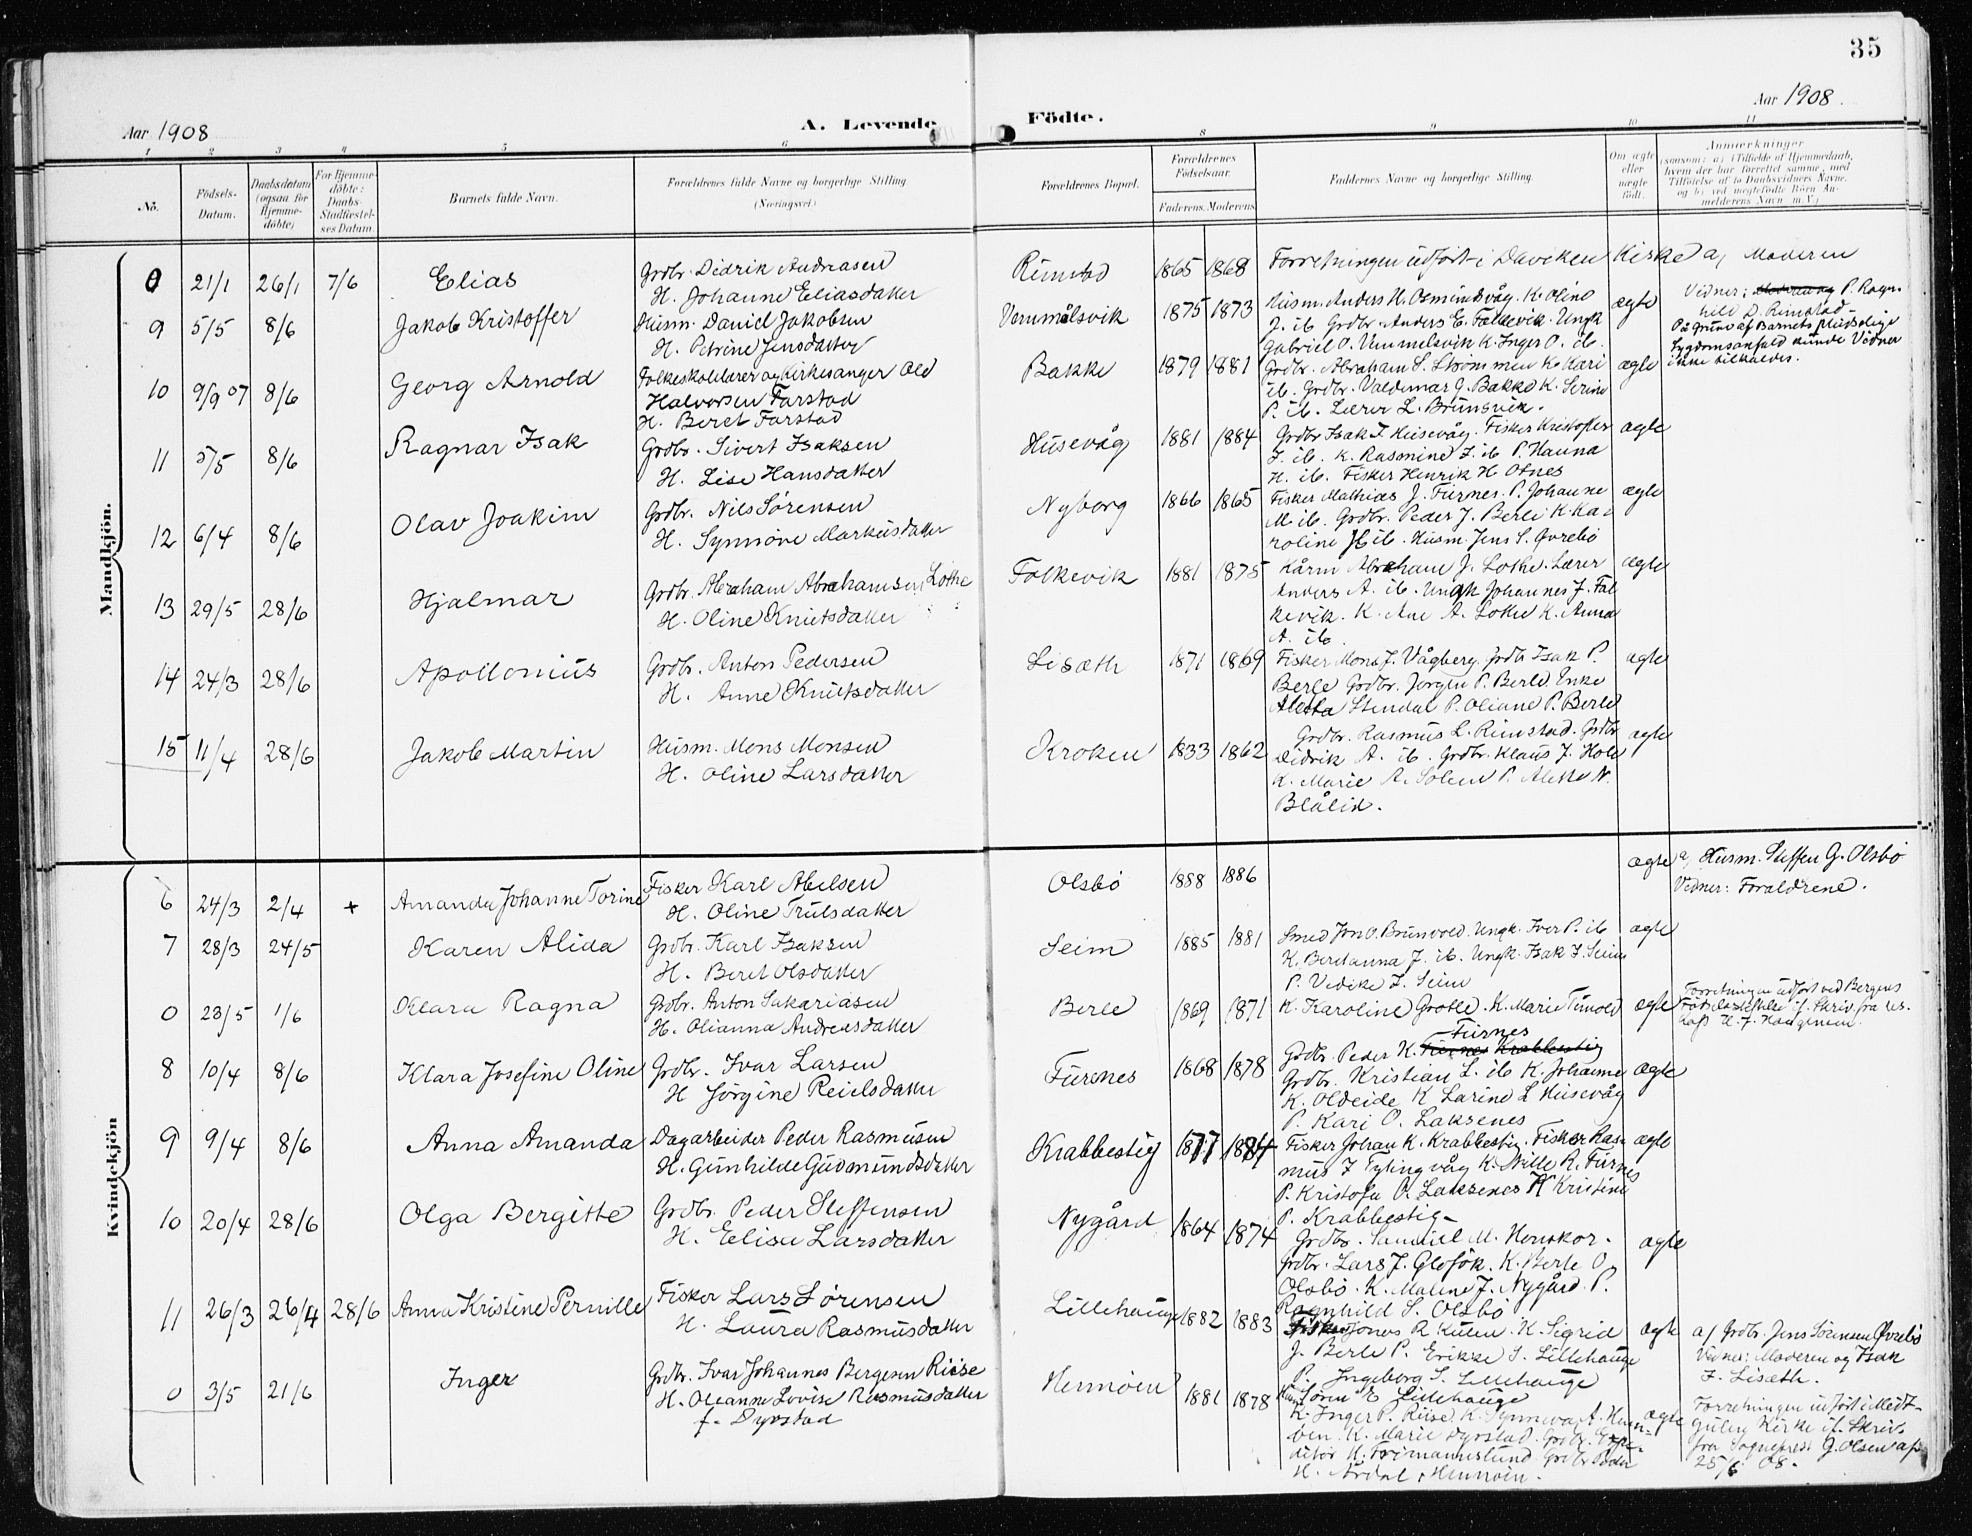 35
Aar 1908
A. Levende Födte.
Aar 1908
1 2 3 4 5 6 8 9 10 11
No.
Födsels-Datum.
Daabsdatum (ogsaa for Hjemmedöbte)
For Hjemmedöbte: Daabs-Stadfæstelses Datum.
Barnets fulde Navn.
Forældrenes fulde Navne og borgerlige Stilling (Næringsvei.)
Forældrenes Bopæl.
Forældrenes Födselsaar.
Faderens. Moderens.
Faddernes Navne og borgerlige Stilling.
Om ægte eller uægte födt.
Anmærkninger (saasom: a) i Tilfælde af Hjemmedaab, hvem der har forrettet samme, med Tilföielse af to Daabsvidners Navne, og b) ved uegtefödte Börn Anmelderens Navn m. V.)
Mandkjön.
0 21/1 26/1 7/6 Elias Grdbr. Didrik Andreasen Rimstad 1865 1868 Forretningen udført i Daviken Kirke a, Moderen
H. Johanne Eliasdatter
Vidner: P. Ragnhild D. Rimstad
På Grund af Barnets pludselige
Sygdomsanfald kunde Vidner
ikke tilkaldes.
9 5/5 8/6 Jakob Kristoffer Husm. Daniel Jakobsen Vemmelsvik 1875 1873 Husm. Anders H. Osmundsvåg. K. Oline ægte
H. Petrine Jensdatter
J. ib. Grdbr. Anders E. Falkevik. Ungk
Gabriel O. Vemmelsvik K. Inger O. ib.
10 9/9 07 8/6 Georg Arnold Folkeskolelærer og Kirkesanger Ole Bakke 1879 1881 Grdbr. Abraham S. Strømmen K. Kari ægte
Halvorsen Farstad
H. Beret Farstad
ib. Grdbr. Valdemar J. Bakke K. Serine
P. ib. Lærer L. Brunsvik.
11 5/5 8/6 Ragnar Isak Grdbr. Sivert Isaksen Husevåg 1881 1884 Grdbr Isak I. Husevåg. Fisker Kristofer ægte
H. Lise Hansdatter
I. ib. K. Rasmine I. ib P. Hanna
H. ib. Fisker Henrik H Otnes
12 6/4 8/6 Olav Joakim Grdbr. Nils Sørensen Nyborg 1866 1865 Fisker Mathias J. Furnes. P. Johanne ægte
H. Synnøve Markusdatter
M ib. Grdbr. Peder J. Berle K Karoline
H ib. Husm. Jens S. Øvrebø
13 29/5 28/6 Hjalmar Grdbr. Abraham Abrahamsen Lothe Falkevik 1881 1875 Kårm Abraham J. Lothe. Lærer ægte
H. Oline Knutsdatter
Anders A. ib. Ungk Johannes J. Falkevik.
K. Ane A. Lothe K. Anna
A. ib.
14 24/3 28/6 Apollonius Grdbr. Anton Pedersen Lisæth 1871 1869 Fisker Mons J. Vågberg. Grdbr Isak P. ægte
H. Anne Knutsdatter
Berle Grdbr. Jørgen P. Berle Enke
Aletta Stendal P. Oliane P. Berle
15 11/4 28/6 Jakob Martin Husm. Mons Monsen Kroken 1833 1862 Grdbr. Rasmus L. Rimstad. Grdbr ægte
H. Oline Larsdatter
Didrik A. ib. Grdbr. Klaus J. Hole
K. Marie A. Solem P. Alette N.
Blålid.
Kvindekjön
6 24/3 2/4 + Amanda Johanne Torine Fisker Karl Abelsen Olsbø 1888 1886 ægte a, Husm. Steffen G. Olsbø
H. Oline Trulsdatter
Vidner: Forældrene.
7 28/3 24/5 Karen Alida Grdbr. Karl Isaksen Seim 1885 1881 Smed Jon O. Brunvold. Ungk. Iver P. ib ægte
H. Beret Olsdatter
K. Beretanna J. ib. Ungk. Isak I. Seim
P. Vedike I. Seim
0 23/5 1/6 Klara Ragna Grdbr. Anton Sakariasen Berle 1869 1871 K. Karoline Grotle. K. Marie Tunold ægte
H. Olianna Andreasdatter
Forretningen udført ved Bergens
Fødselsstiftelse if. Skriv. fra
8 10/4 8/6 Klara Josefine Oline Grdbr. Ivar Larsen Furnes 1868 1878 Grdbr. Peder K. Furnes ægte
H Jørgine Reielsdatter
Grdbr. Kristian L. ib K. Johanne
K. Oldeide K Larine L Husevåg
P. Kari O. Laksenes
9 9/4 8/6 Anna Amanda Dagarbeider Peder Rasmusen Krabbestig 1877 1884 Fisker Johan K. Krabbestig. Fisker Rasmus ægte
H. Gunhilde Gudmundsdatter
K. Nille R. Furnes
P. Kristofa O. Laksenes K Kristine
P. Krabbestig
10 20/4 28/6 Olga Bergitte Grdbr. Peder Steffensen Nygård 1864 1874 Grdbr. Samuel M. Henskor. ægte
H. Elisa Larsdatter
Grdbr. Lars J. Glofök. K. Berte O.
Olsbø. K. Maline J. Nygård. P.
Ragnhild S. Olsbø
11 26/3 26/4 28/6 Anna Kristine Pernille Fisker Lars Sørensen Lillehauge 1882 1883 Fisker Jonas R Kulen. K. Sigrid ægte a) Grdbr. Jens Sørensen Øvrebø
H. Laura Rasmusdatter
J. Berle P. Erikke S. Lillehauge
P. Ingeborg S. Lillehauge
Søren E Lillehauge
Vidner: Moderen og Isak
I. Lisæth.
0 3/5 21/6 Inger Grdbr. Ivar Johannes Bergesen Riise Hennøen 1881 1878 K. Inger P. Riise K. Synneva A. Hennøen. ægte
H. Oleanna Lovise Rasmusdatter
f. Dyrstad
K. Marie Dyrstad. Grdbr.
Grdbr Peder
H. Årdal, Hennøen.
Forretningen udført i Midt-
gulen Kirke if. Skriv.
fra Sognepræst G. Olsen af
25/6 08.